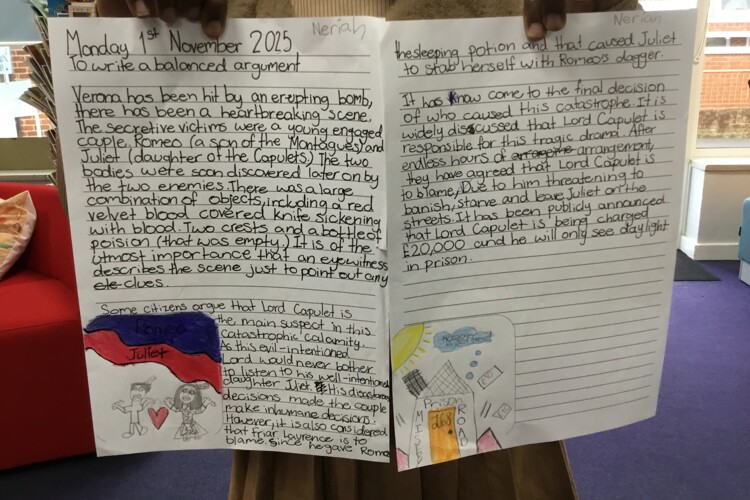 Neriah
Monday 1st November 2025
To write a balanced argument
Verona has been hit by an erepting bomb,
there has been a heartbreaking scene.
The secretive victims were a young engaged
couple, Romeo (a son of the Montagues) and
Juliet (daughter of the Capulets). The two
bodies were soon discovered later on by
the two enemies. There was a large
combination of objects, including a red
velvet blood covered knife sickening
with blood. Two crests and a bottle of
poision (that was empty.) It is of the
utmost importance that an eyewitness
describes the scene just to point out any
ele-clues.
Some citizens argue that Lord Capulet is
the main suspect in this
catastrophic calamity.
As this evil-intentioned
Lord would never bother
to listen to his well-intentioned
daughter Juliet. His disasterous
decisions made the couple
make inhumane decisions.
However, it is also considered
that Friar Lawrence is to
blame. Since he gave Romeo
Romeo
Juliet
Neriah
the sleeping potion and that caused Juliet
to stab herself with Romeo's dagger.
It has know come to the final decision
of who caused this catastrophe. It is
widely discussed that Lord Capulet is
responsible for this tragic drama. After
endless hours of arrangement,
they have agreed that Lord Capulet is
to blame, Due to him threatening to
banish, starve and leave Juliet on the
streets. It has been publicly announced
that Lord Capulet is being charged
£20,000 and he will only see daylight
in prison.
Prison
ROAD